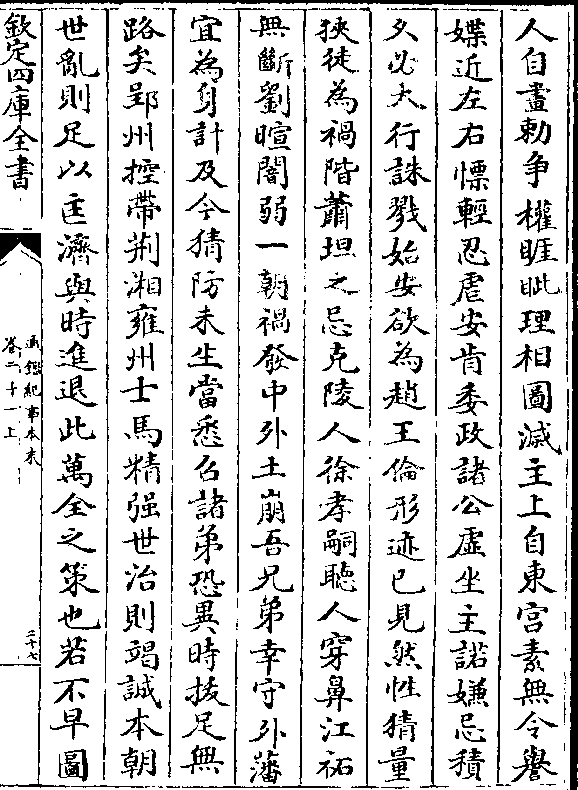 人自畫勅争權睚眦理相圖滅主上自東宫素無令譽
媟近左右慓輕忍虐安肯委政諸公虚坐主諾嫌忌積
乆必大行誅戮始安欲為趙王倫形迹已見然性猜量
狹徒為禍階蕭坦之忌克陵人徐孝嗣聽人穿鼻江祏
無斷劉暄闇弱一朝禍發中外土崩吾兄弟幸守外藩
宜為身計及今猜防未生當悉召諸弟恐異時拔足無
路矣郢州控帶荆湘雍州士馬精强世治則竭誠本朝
世亂則足以匡濟與時進退此萬全之策也若不早圖
欽定四庫全書
通鑑紀事本末
卷二十一上
二十七